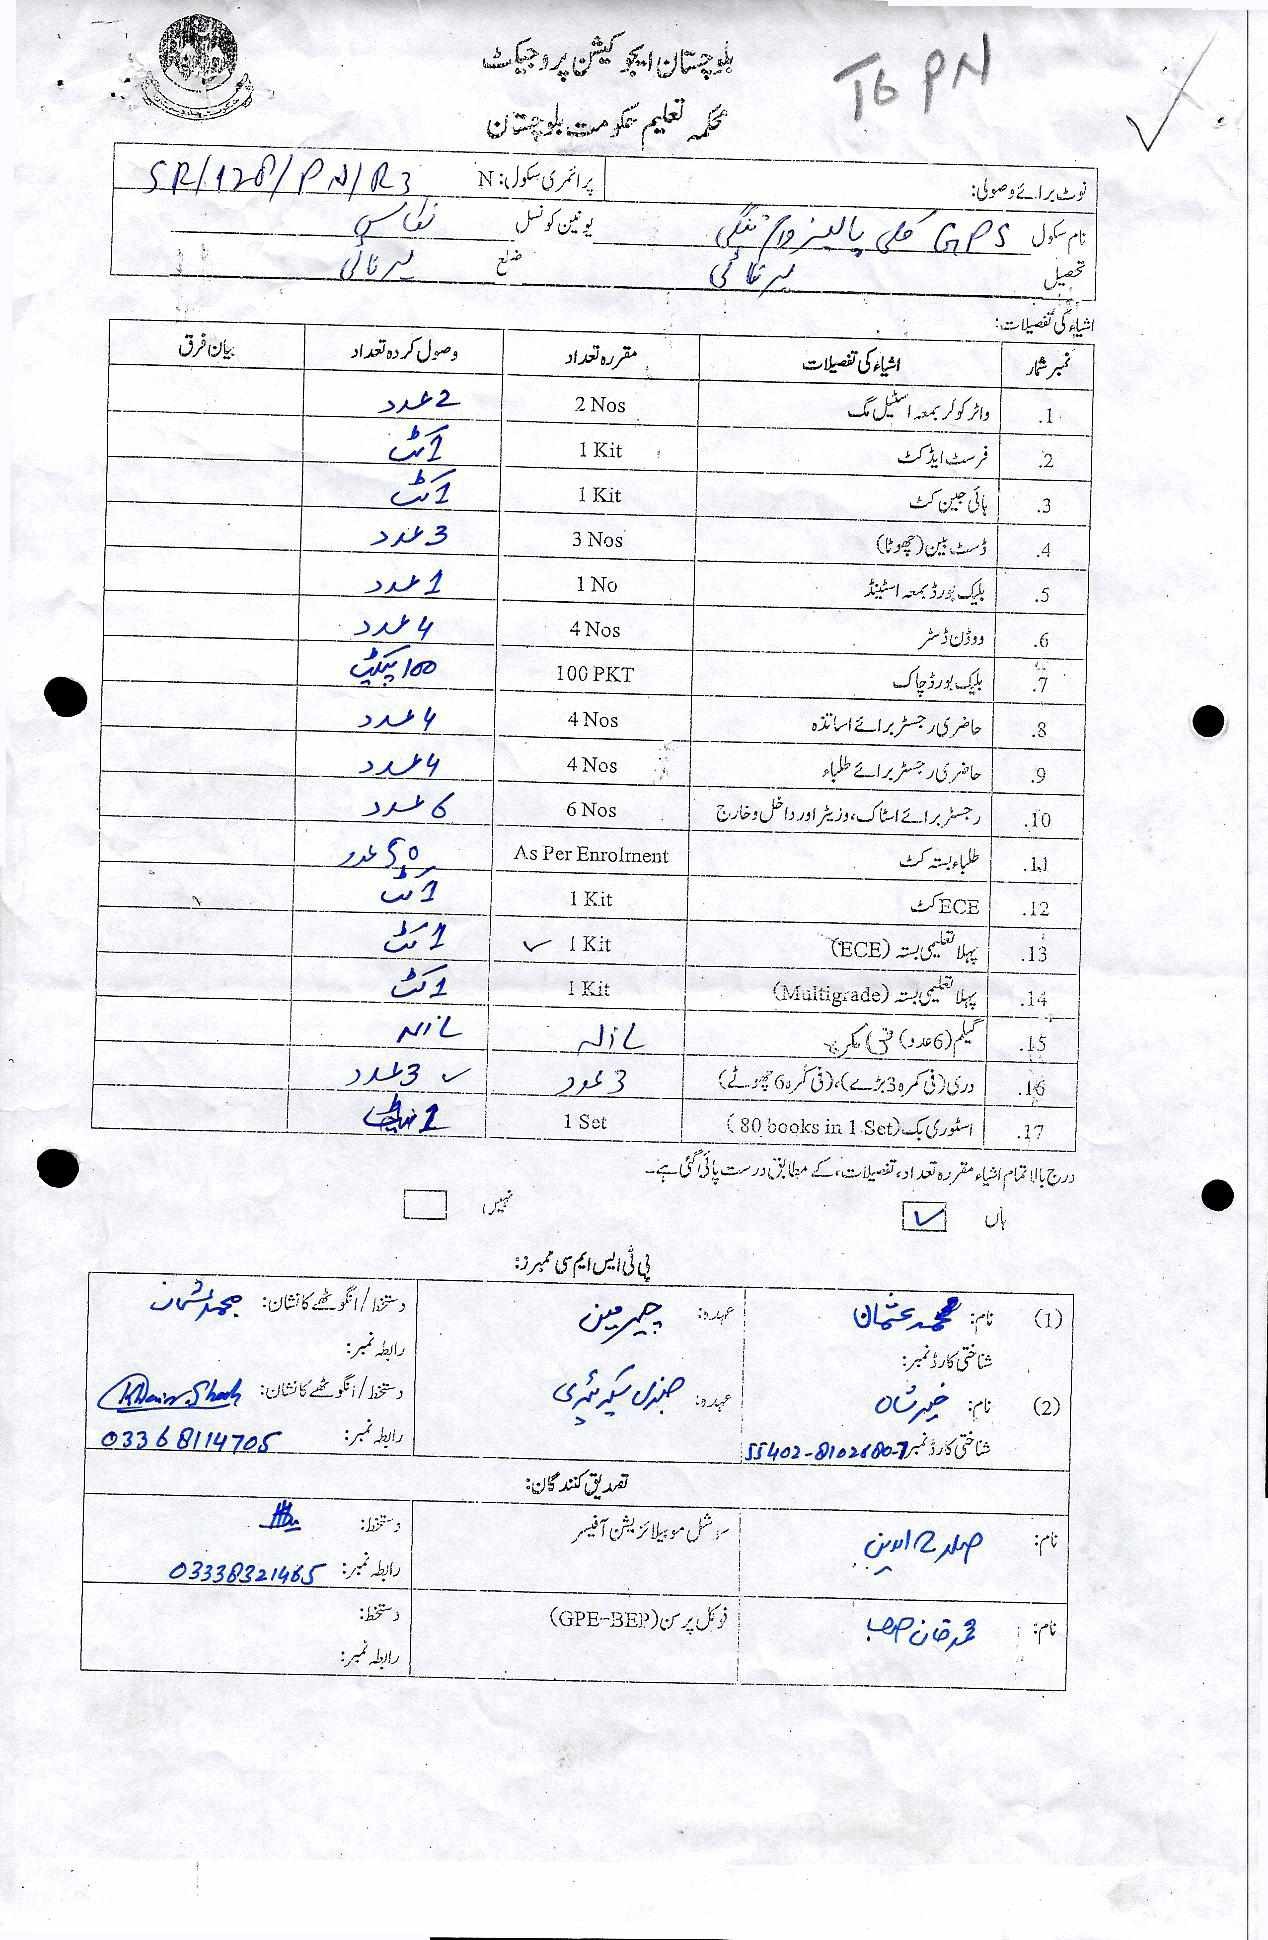 بلوچستان ایجوکیشن پروجیکٹ
T6 PN
محکمہ تعلیم حکومت بلوچستان
نوٹ برائے وصولی: پرائمری سکول: N SR/128/PN/R3
نام سکول GPS کلی پالیزوام تنگی یونین کونسل
تحصیل ہرنائی ضلع ہرنائی
اشیاء کی تفصیلات:
نمبر شمار اشیاء کی تفصیلات مقررہ تعداد وصول کردہ تعداد بیان فرق
1. واٹر کولر بمعہ اسٹیل مگ 2 Nos 2 عدد
2. فرسٹ ایڈ کٹ 1 Kit 1 کٹ
3. ہائی جین کٹ 1 Kit 1 کٹ
4. ڈسٹ بین (چھوٹا) 3 Nos 3 عدد
5. بلیک بورڈ بمعہ اسٹینڈ 1 No 1 عدد
6. ووڈن ڈسٹر 4 Nos 4 عدد
7. بلیک بورڈ چاک 100 PKT 100 پیکٹ
8. حاضری رجسٹر برائے اساتذہ 4 Nos 4 عدد
9. حاضری رجسٹر برائے طلباء 4 Nos 4 عدد
10. رجسٹر برائے اسٹاک، وزیٹر اور داخل و خارج 6 Nos 6 عدد
11. طلباء بستہ کٹ As Per Enrolment 50 عدد
12. ECE کٹ 1 Kit 1 کٹ
13. پہلا تعلیمی بستہ (ECE) 1 Kit 1 کٹ
14. پہلا تعلیمی بستہ (Multigrade) 1 Kit 1 کٹ
15. گیلم (6 عدد) فی
16. دری (فی کمرہ 3 بڑے)، (فی کمرہ 6 چھوٹے) 3 عدد 3 عدد
17. اسٹوری بک (80 books in 1 Set) 1 Set 1
درج بالا تمام اشیاء مقررہ تعداد، تفصیلات، کے مطابق درست پائی گئی ہے۔
ہاں نہیں
پی ٹی ایس ایم سی ممبرز:
(1) نام: محمد عثمان عہدہ: چیرمین دستخط/انگوٹھے کا نشان: محمد عثمان
شناختی کارڈ نمبر: رابطہ نمبر:
(2) نام: خیر شاہ عہدہ: جنرل سیکریٹری دستخط/انگوٹھے کا نشان: Khair Shah
شناختی کارڈ نمبر 55402-8102680-7 رابطہ نمبر: 03368114705
تصدیق کنندگان:
نام: صلاح الدین سوشل موبیلائزیشن آفیسر دستخط:
رابطہ نمبر: 03338321465
نام: محمد خان فوکل پرسن (GPE-BEP) دستخط:
رابطہ نمبر: